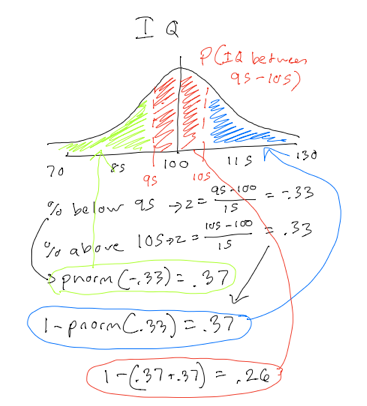 IQ
P(IQ between
95-105)
70 85 95 100 105 115 130
% below 95 → z = 95-100/15 = -.33
% above 105 → z = 105-100/15 = .33
pnorm(-.33) = .37
1-pnorm(.33) = .37
1-(.37+.37) = .26